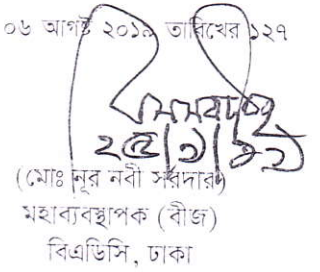 ০৬ আগষ্ট ২০১৯ তারিখের ১২৭
২৫|৯|১৯
(মোঃ নূর নবী সরদার)
মহাব্যবস্থাপক (বীজ)
বিএডিসি, ঢাকা